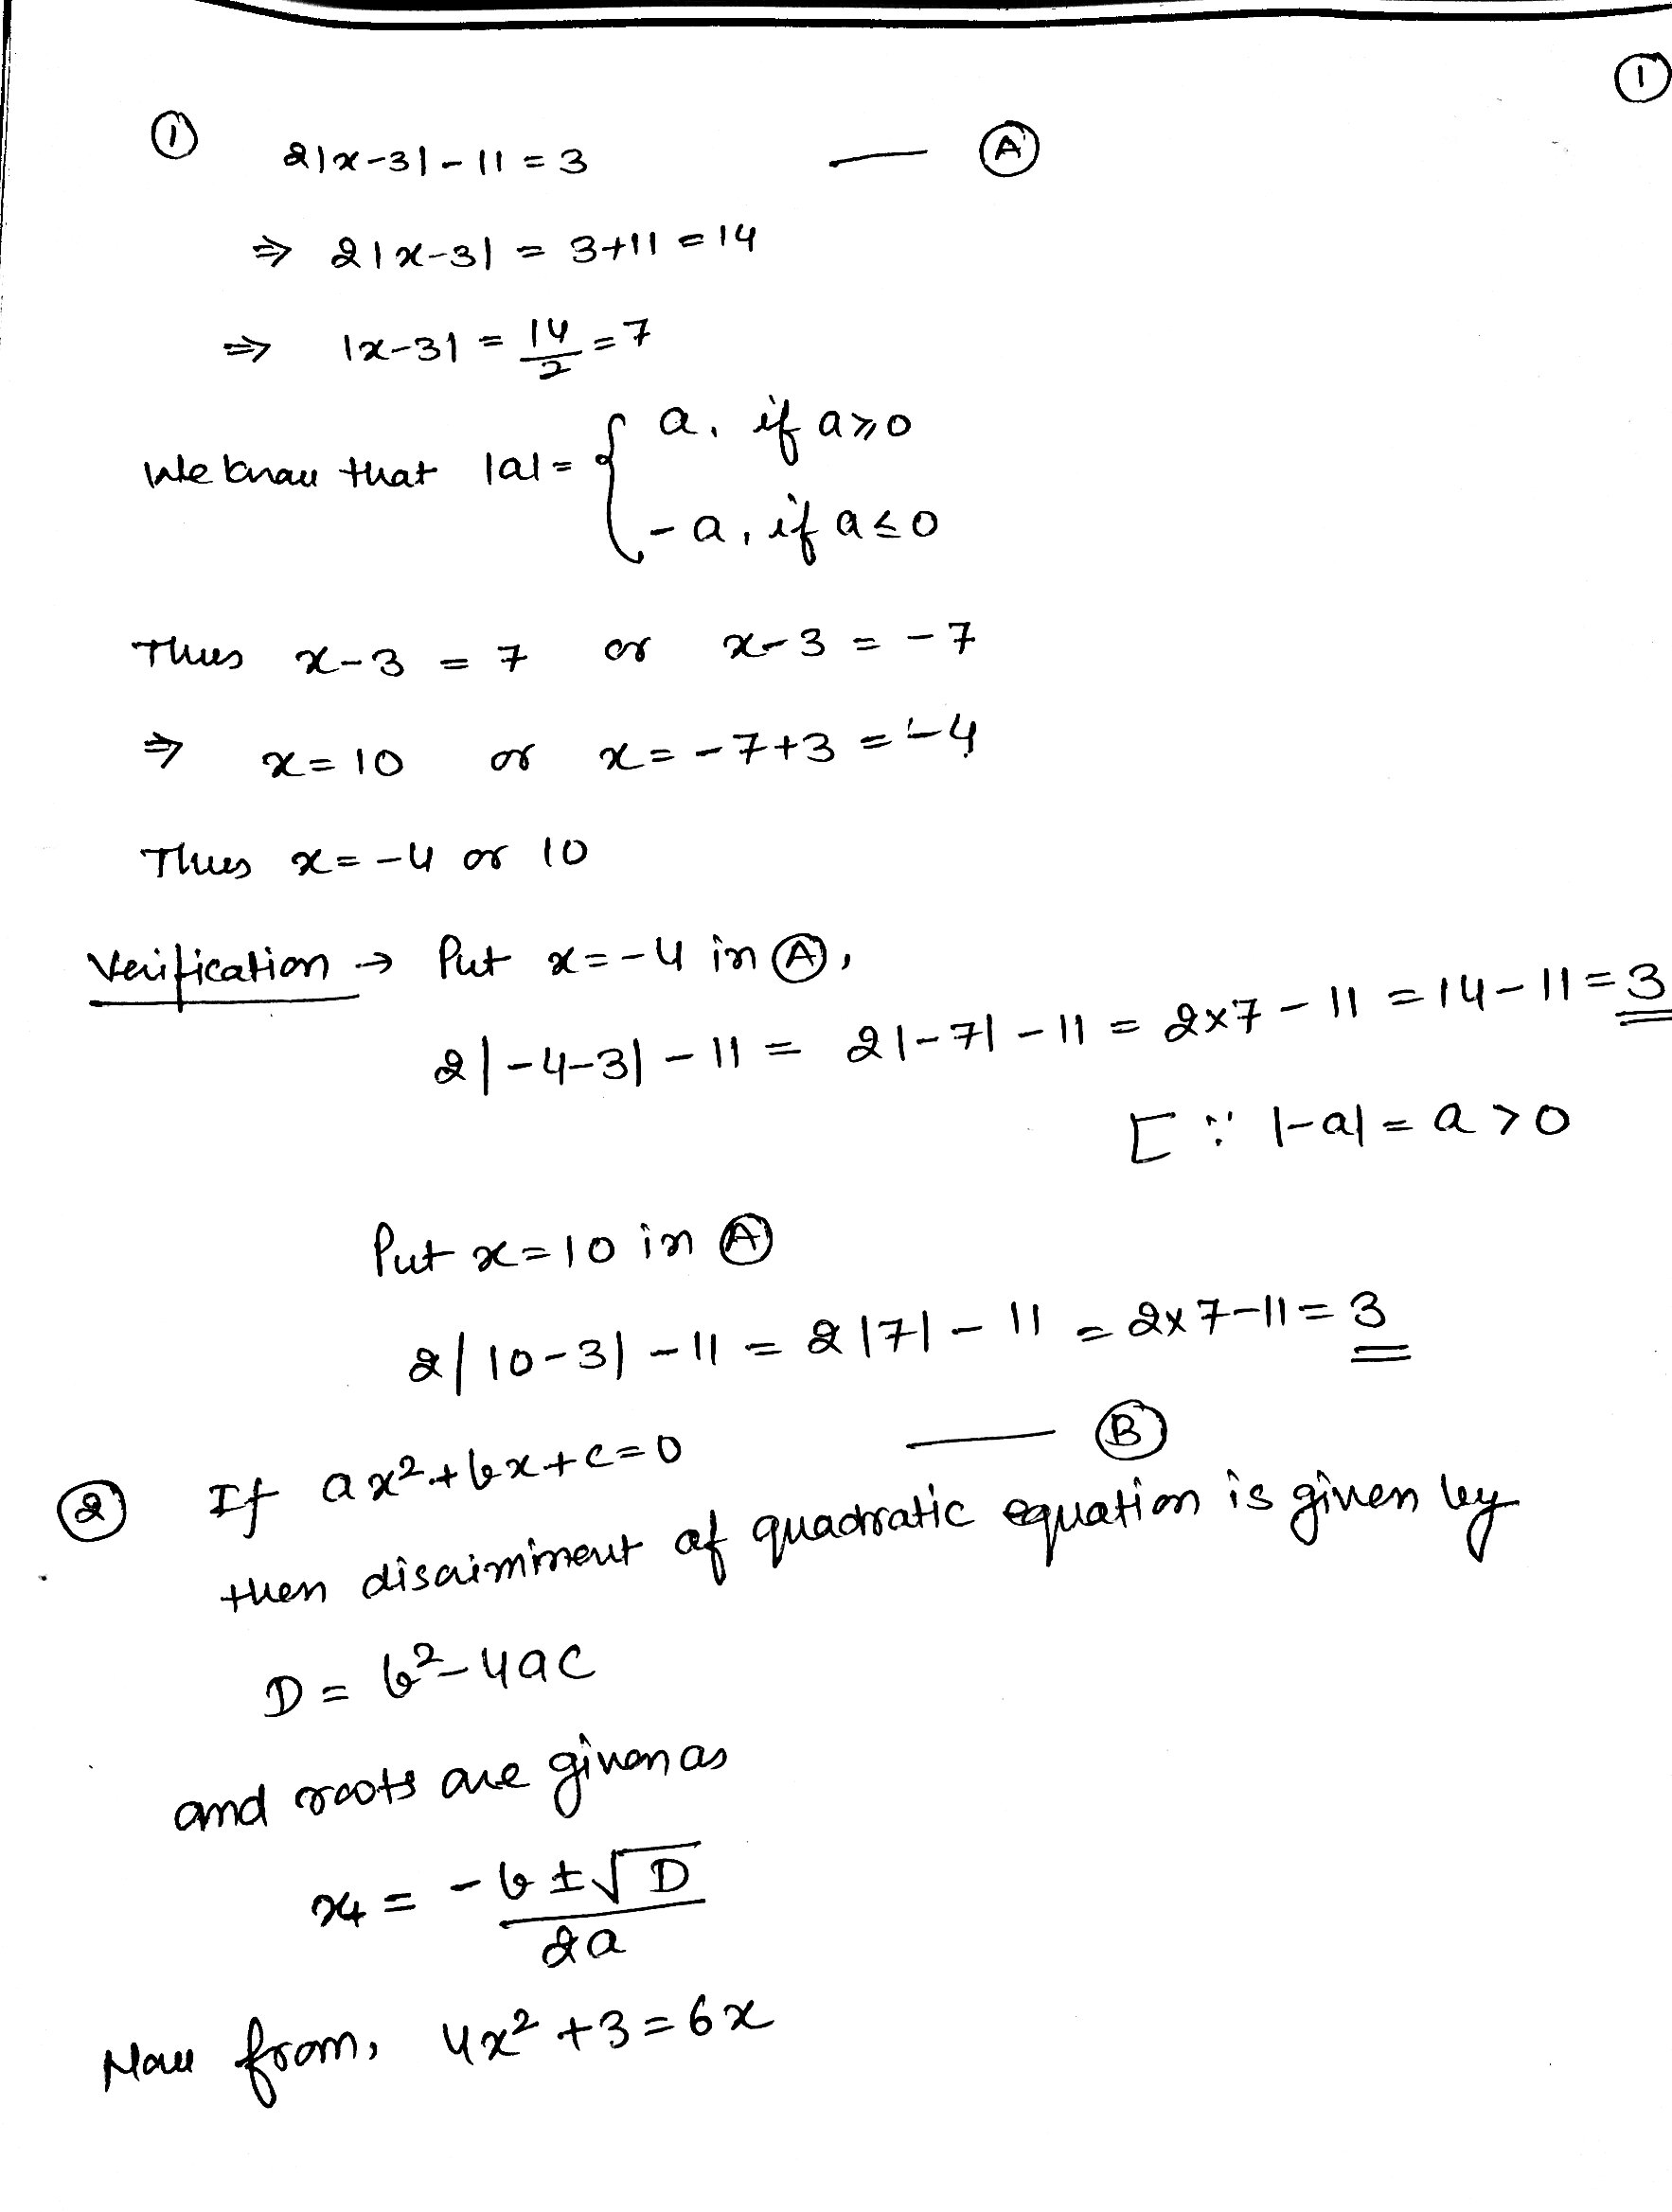 ①
① 2|x-3| - 11 = 3 — Ⓐ
⇒ 2|x-3| = 3+11 = 14
⇒ |x-3| = 14/2 = 7
We know that |a| = { a, if a⩾0
-a, if a≤0
Thus x-3 = 7 or x-3 = -7
⇒ x=10 or x= -7+3 = -4
Thus x= -4 or 10
Verification → Put x=-4 in Ⓐ,
2|-4-3| - 11 = 2|-7| - 11 = 2×7 - 11 = 14-11 = 3
[∵ |-a| = a > 0
Put x=10 in Ⓐ
2|10-3| - 11 = 2|7| - 11 = 2×7-11 = 3
② If ax²+bx+c=0 — Ⓑ
then discriminent of quadratic equation is given by
D = b²-4ac
and roots are given as
x± = -b±√D / 2a
Now from, 4x²+3=6x